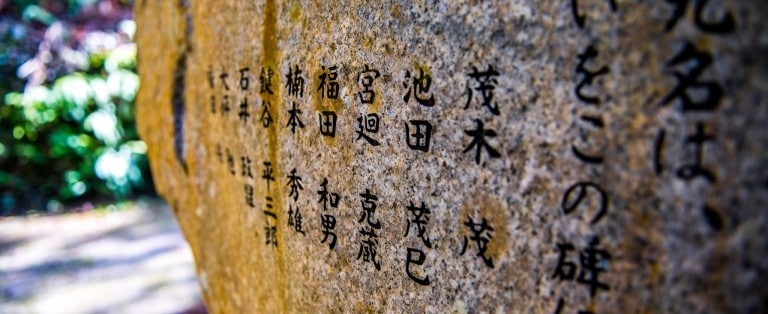 名は、
いをこの碑
茂木 茂
池田 茂巳
宮廻 克蔵
福田 和男
楠本 秀雄
鍵谷 平三郎
石井